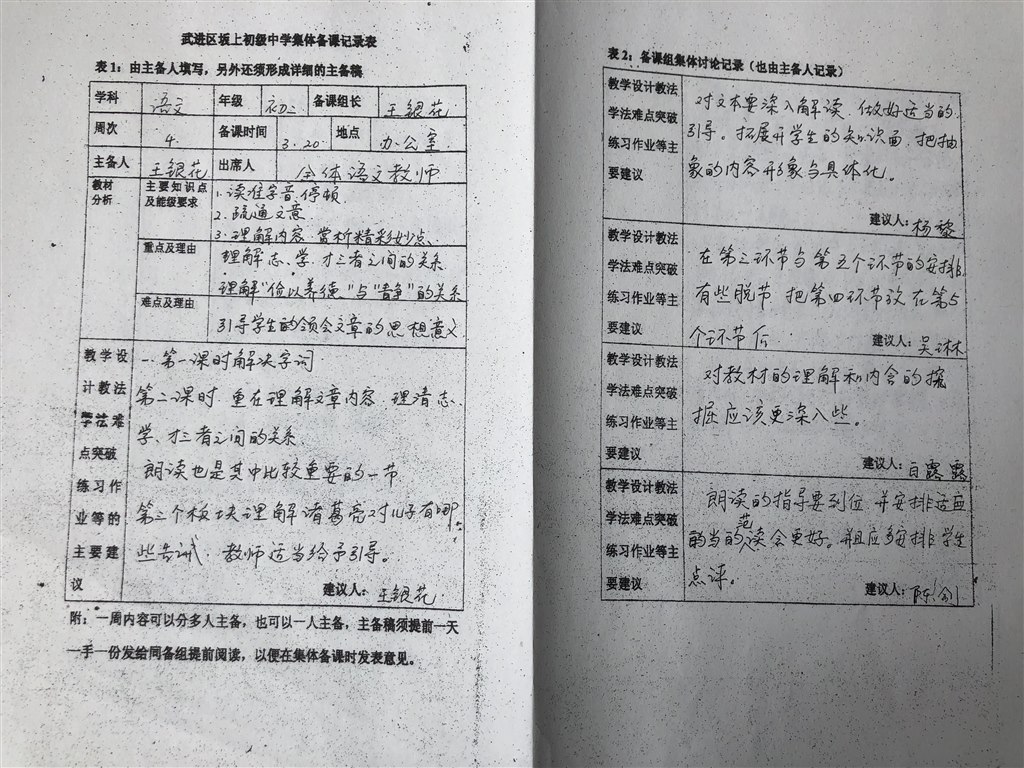 武进区坂上初级中学集体备课记录表
表1：由主备人填写，另外还须形成详细的主备稿
学科 语文 年级 初二 备课组长 王银花
周次 4 备课时间 3.20 地点 办公室
主备人 王银花 出席人 全体语文教师
教材分析 主要知识点及能级要求 1.读准字音 停顿
2.疏通文意
3.理解内容 赏析精彩妙点、
重点及理由 理解志、学、才三者之间的关系
理解"俭以养德"与"静"的关系
难点及理由
引导学生的领会文章的思想意义
教学设计教法学法难点突破练习作业等的主要建议
一.第一课时解决字词
第二课时 重在理解文章内容 理清志、
学、才三者之间的关系.
朗读也是其中比较重要的一节
第三个板块理解诸葛亮对儿子有哪
些告诫. 教师适当给予引导。
建议人：王银花
附：一周内容可以分多人主备，也可以一人主备，主备稿须提前一天
一手一份发给同备组提前阅读，以便在集体备课时发表意见。
表2：备课组集体讨论记录（也由主备人记录）
教学设计教法学法难点突破练习作业等主要建议
对文本要深入解读 做好适当的
引导。拓展开学生的知识面 把抽
象的内容形象与具体化。
建议人：杨黎
教学设计教法学法难点突破练习作业等主要建议
在第三环节与第五个环节的安排
有些脱节 把第四环节放在第5
个环节后
建议人：吴琳
教学设计教法学法难点突破练习作业等主要建议
对教材的理解和内含的挖
掘应该更深入些。
建议人：白露露
教学设计教法学法难点突破练习作业等主要建议
朗读的指导要到位 并安排适应
的当的范读会更好。并且应多安排学生
点评。
建议人：陈剑